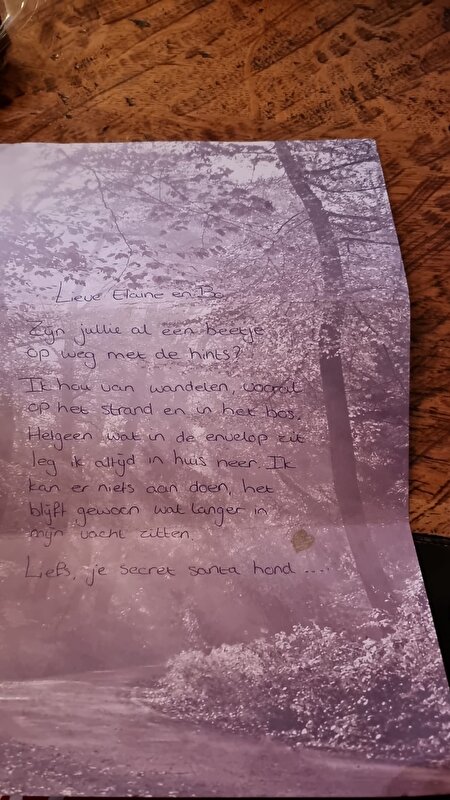 Lieve Elaine en Bo,
Zijn jullie al een beetje
op weg met de hints?
Ik hou van wandelen, vooral
op het strand en in het bos.
Hetgeen wat in de envelop zit
leg ik altijd in huis neer. Ik
kan er niets aan doen, het
blijft gewoon wat langer in
mijn vacht zitten.
Liefs, je secret santa hond ....